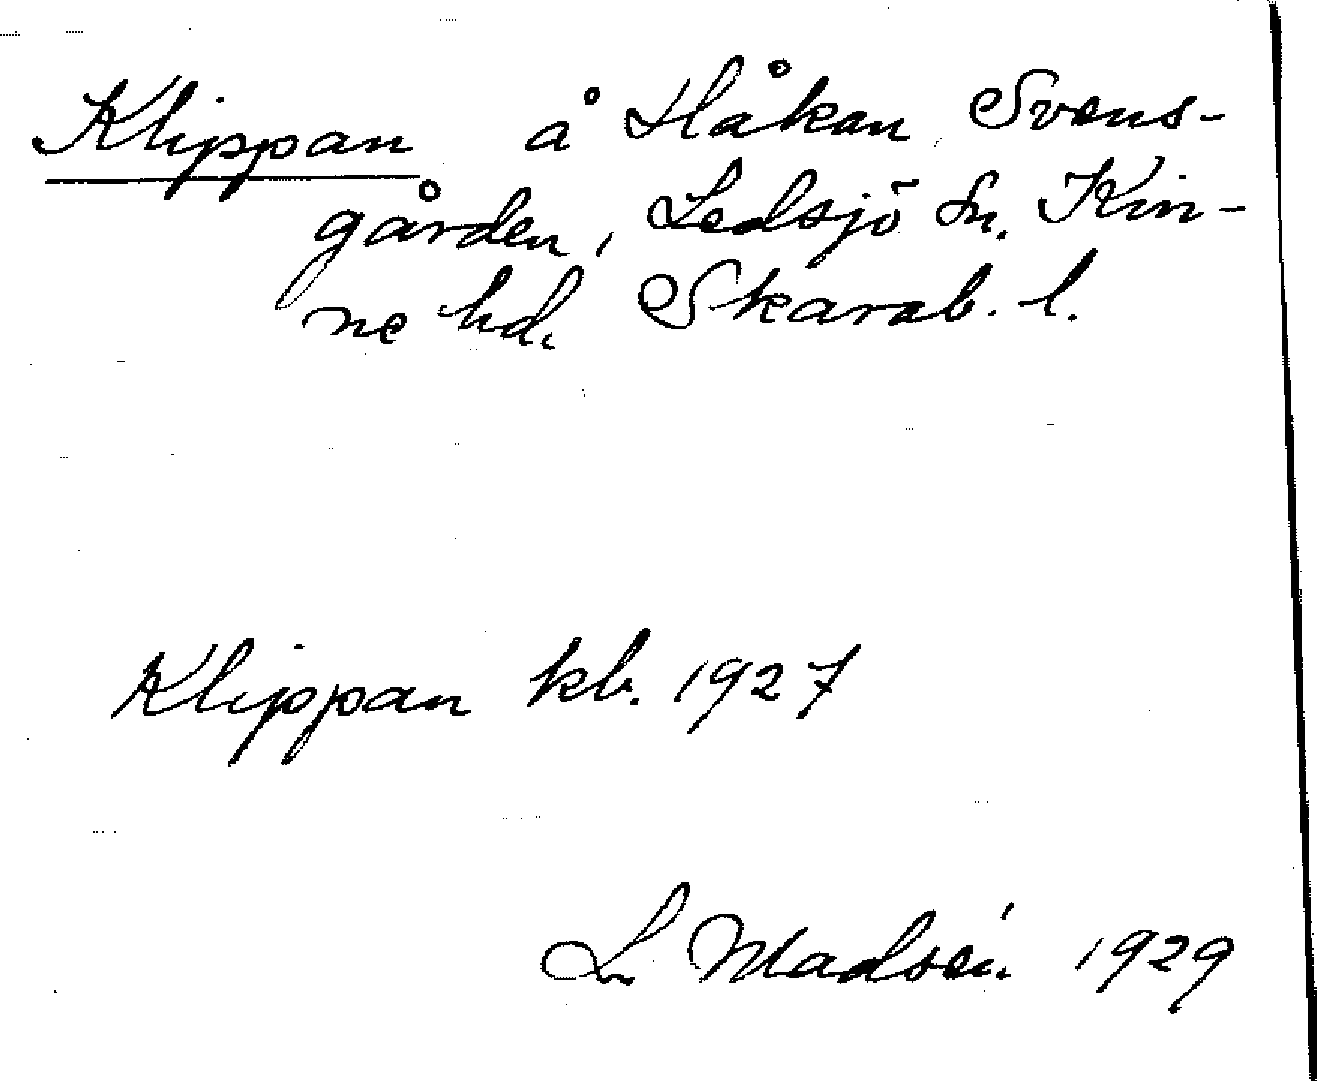 Klippan å Håkan Svens-
gården, Ledsjö sn. Kin-
ne hd. Skarab. l.
Klippan kb. 1927
Ln Madsén 1929